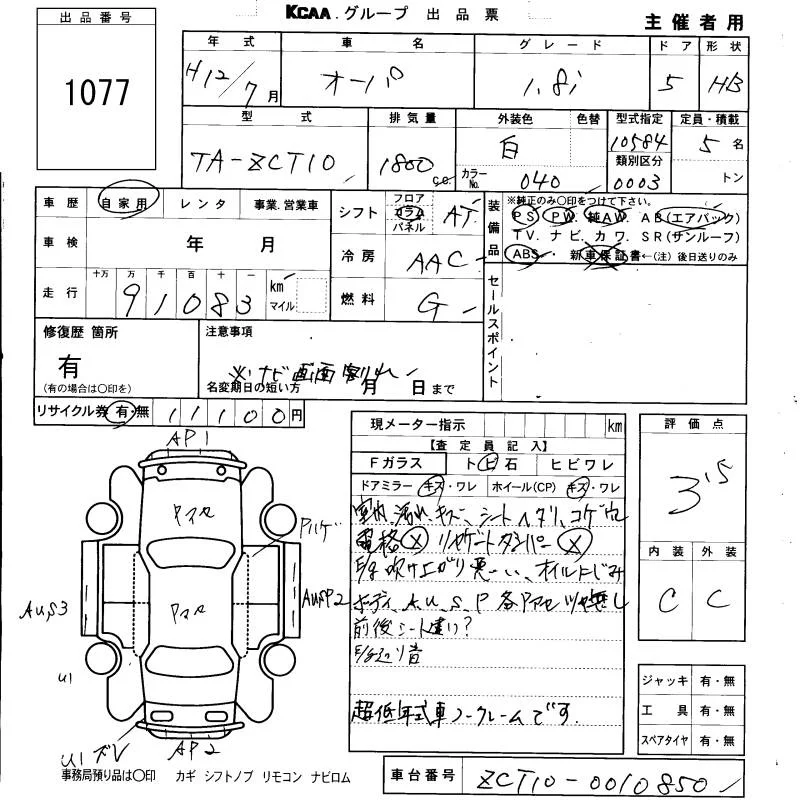 KCAA.グループ 出品票
主催者用
出品番号
1077
年式 車名 グレード ドア 形状
H12/7月 オーパ 1.8i 5 HB
型式 排気量 外装色 色替 型式指定 定員・積載
TA-ZCT10 1800c.c. 白 10584 5名
カラーNo. 040 類別区分 0003 トン
車歴 自家用 レンタ 事業.営業車
シフト フロア コラム パネル AT
装備品
※純正のみ〇印をつけて下さい。
PS PW. 純AW. AB(エアバック)
TV. ナビ. カワ. SR(サンルーフ)
ABS 新車保証書←(注)後日送りのみ
車検 年 月
冷房 AAC
走行 十万 万 千 百 十 一
91083 km マイル
燃料 G
セールスポイント
修復歴 箇所
有
(有の場合は〇印を)
注意事項
※ナビ画面割れ
名変期日の短い方 月 日まで
リサイクル券 有・無 11100円
現メーター指示 km
【査定員記入】
Fガラス トビ石 ヒビワレ
ドアミラー キズ・ワレ ホイール(CP) キズ・ワレ
室内、汚れ、キズ、シートヘタリ、コゲ穴
電格× リヤゲートダンパー×
E/g吹け上がり悪い、オイルにじみ
ボディ、A、U、S、P 各 ツヤ無し
前後シート違い?
音
超低年式車ノークレームです
評価点
3.5
内装 外装
C C
ジャッキ 有・無
工具 有・無
スペアタイヤ 有・無
AP1
Pハゲ
AUS3
AUSP2
U1
U1
AP2
事務局預り品は〇印 カギ シフトノブ リモコン ナビロム
車台番号 ZCT10-0010850